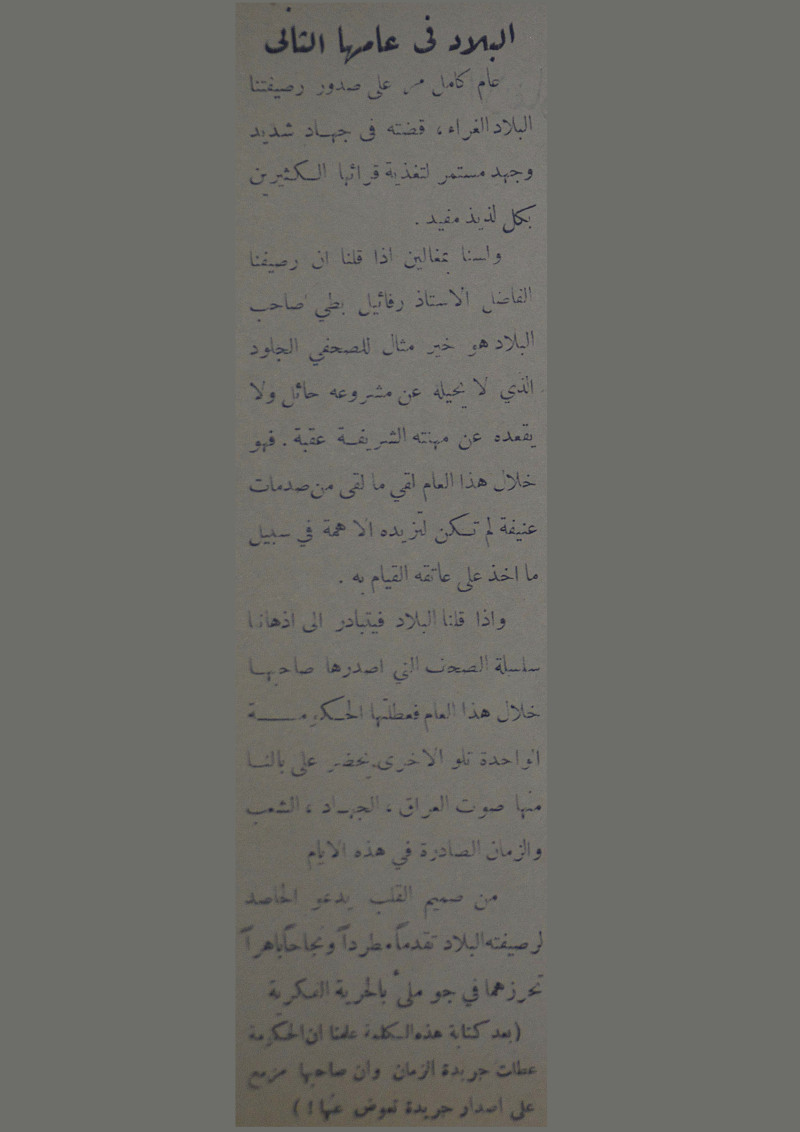 البلاد فى عامها الثانى
عام كامل مر على صدور رصيفتنا
البلاد الغراء ، قضته فى جهاد شديد
وجهد مستمر لتغذية قرائها الكثيرين
بكل لذيذ مفيد .
ولسنا بمغالين اذا قلنا ان رصيفنا
الفاضل الاستاذ رفائيل بطي صاحب
البلاد هو خير مثال للصحفي الجلود
الذي لا يحيله عن مشروعه حائل ولا
يقعده عن مهنته الشريفة عقبة . فهو
خلال هذا العام لقي ما لقى من صدمات
عنيفة لم تكن لتزيده الا همة في سبيل
ما اخذ على عاتقه القيام به .
واذا قلنا البلاد فيتبادر الى اذهاننا
سلسلة الصحف التي اصدرها صاحبها
خلال هذا العام فعطلتها الحكومة
الواحدة تلو الاخرى يحضر على بالنا
منها صوت العراق ، الجهاد ، الشعب
والزمان الصادرة في هذه الايام
من صميم القلب يدعو الحاصد
لرصيفته البلاد تقدماً مطرداً ونجاحاً باهراً
تحرزهما في جو ملئ بالحرية الفكرية
(بعد كتابة هذه الكلمة علمنا ان الحكومة
عطلت جريدة الزمان وان صاحبها مزمع
على اصدار جريدة تعوض عنها ! )